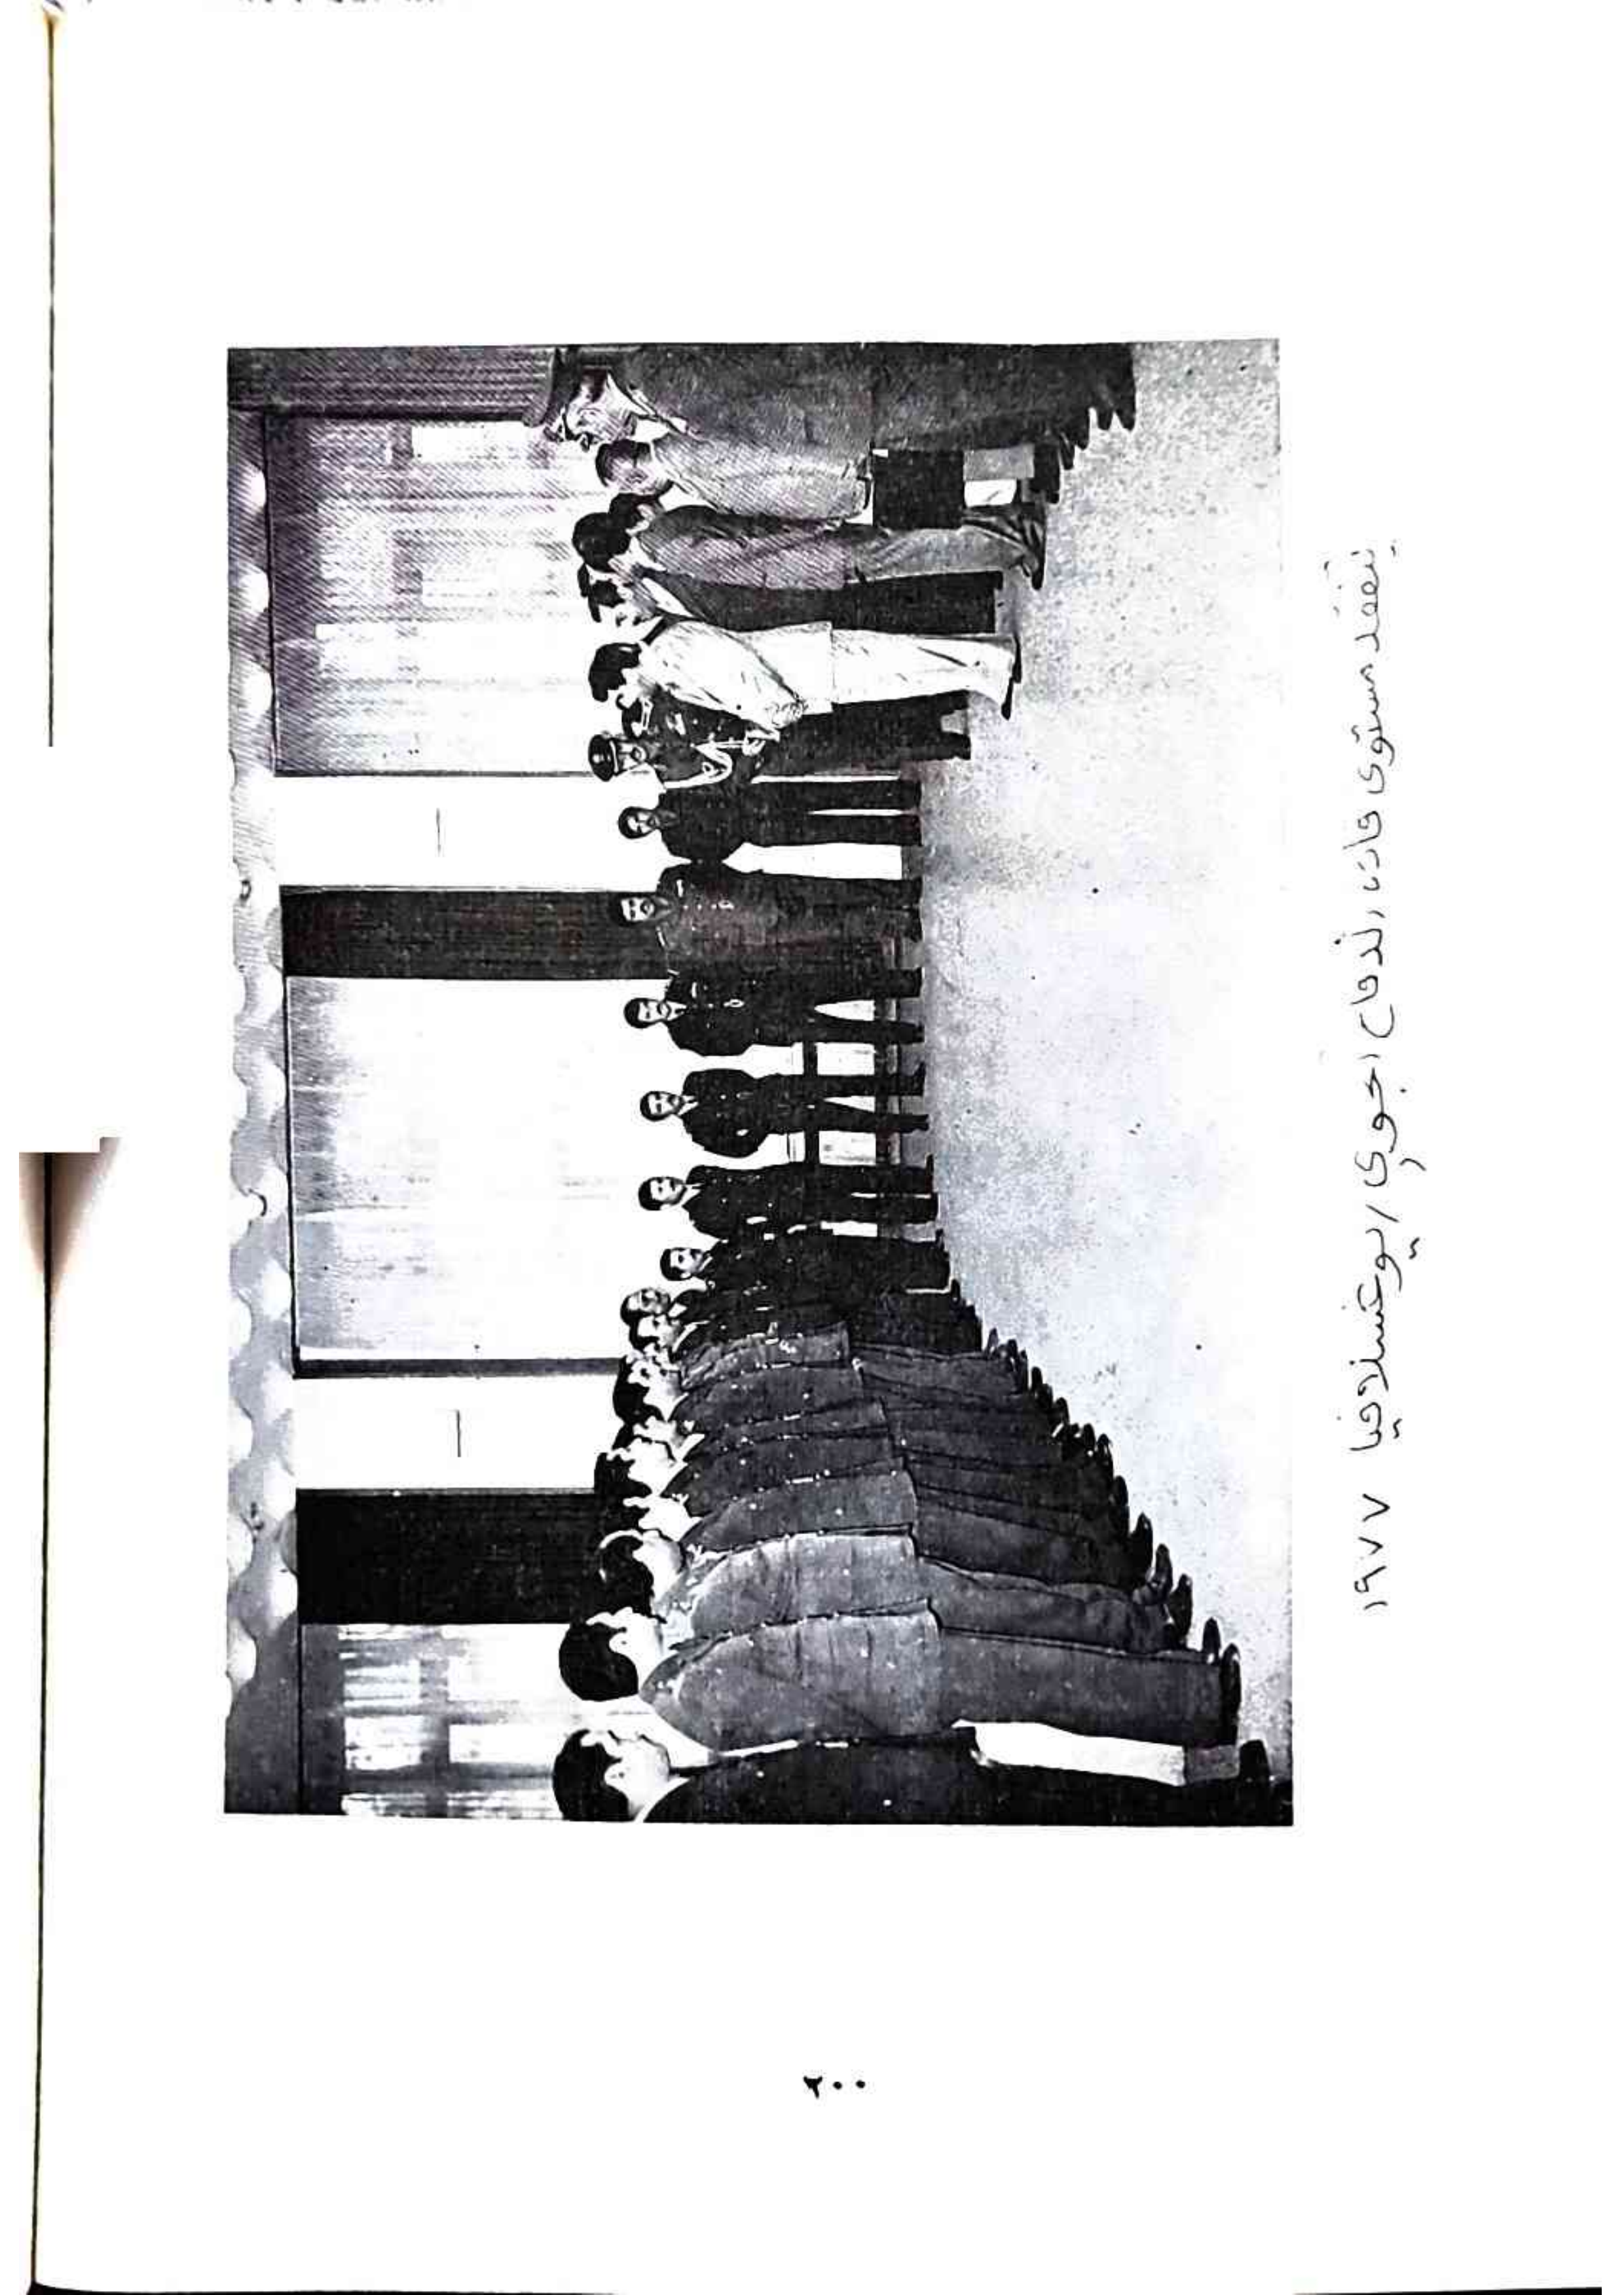 يتفقد مستوى قادة الدفاع الجوي / يوغسلافيا ١٩٧٧
٢٠٠